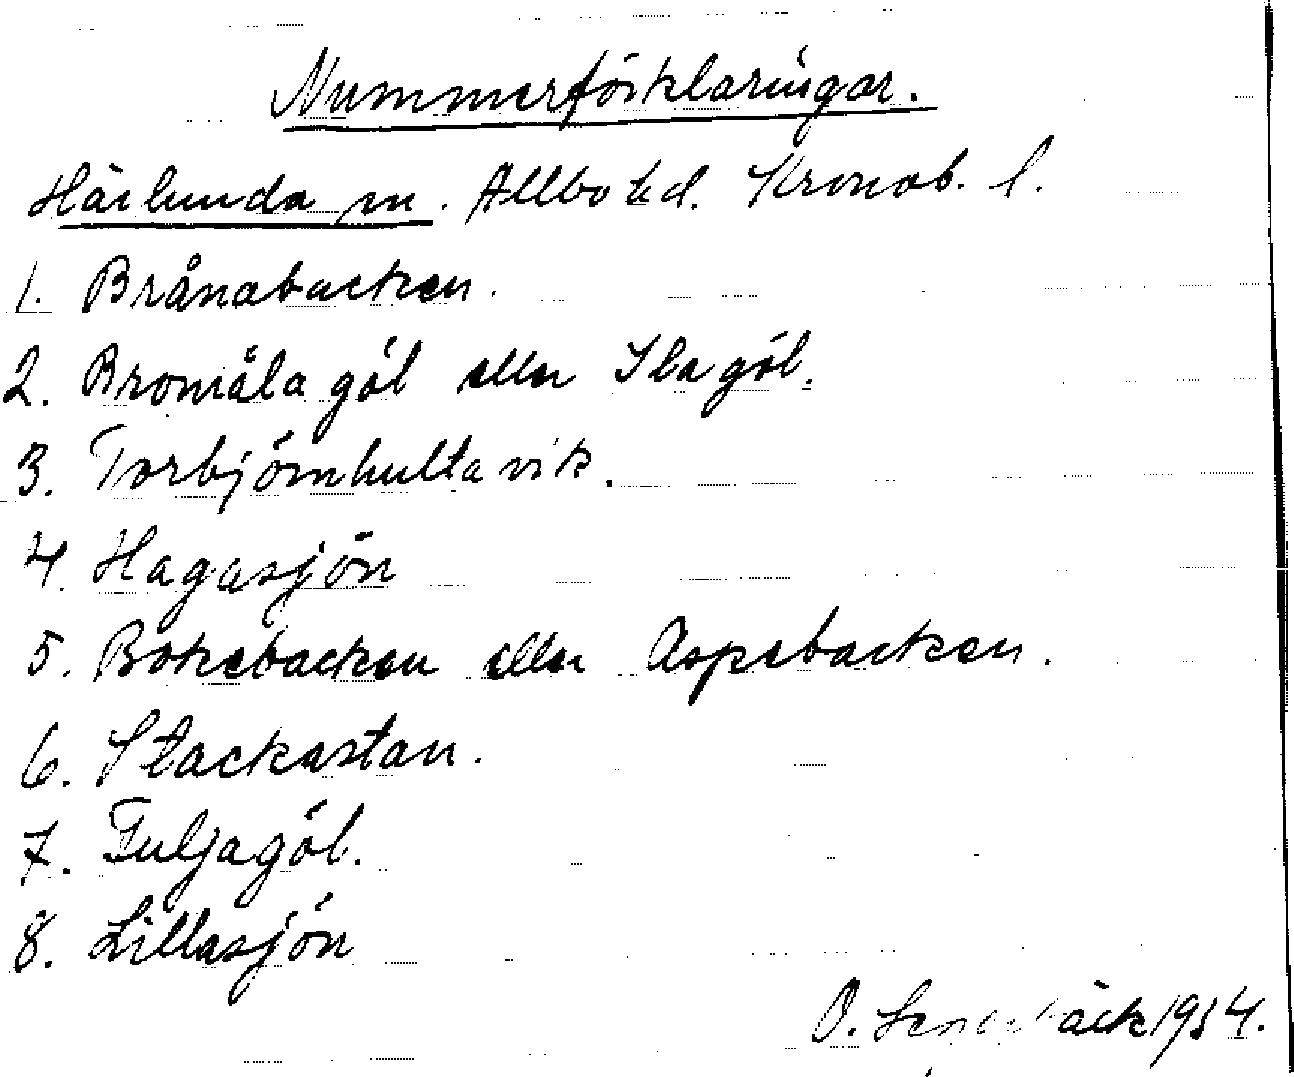 Nummerförklaringar.
Härlunda sn. Allbo hd. Kronob. l.
1. Brånabacken.
2. Bromåla göl eller Ilagöl.
3. Torbjörnhulta vik.
4. Hagasjön
5. Bokebacken eller Aspebacken.
6. Stackastan.
7. Fuljagöl.
8. Lillasjön
O. 1934.